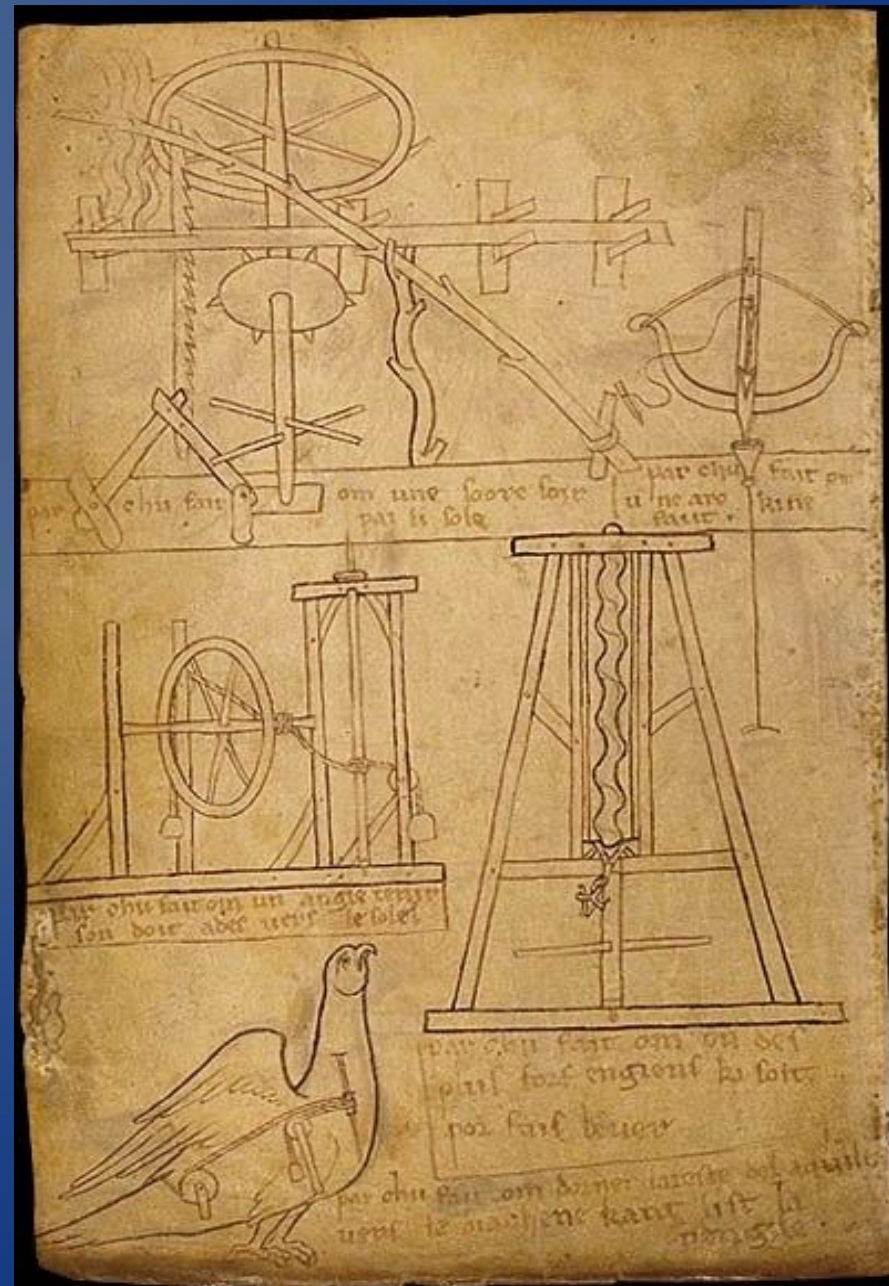 par chu fait om une soore soir
par li sole
par chu fait om
u ne arc ki ne
faut.
par chu fait om un angle tenir
son doit ades vers le solel
par chu fait om on des
plus fors engiens ki soit
por fais lever
par chu fait om dorner la teste del aquile
vers le diachene kant list la
vengile.